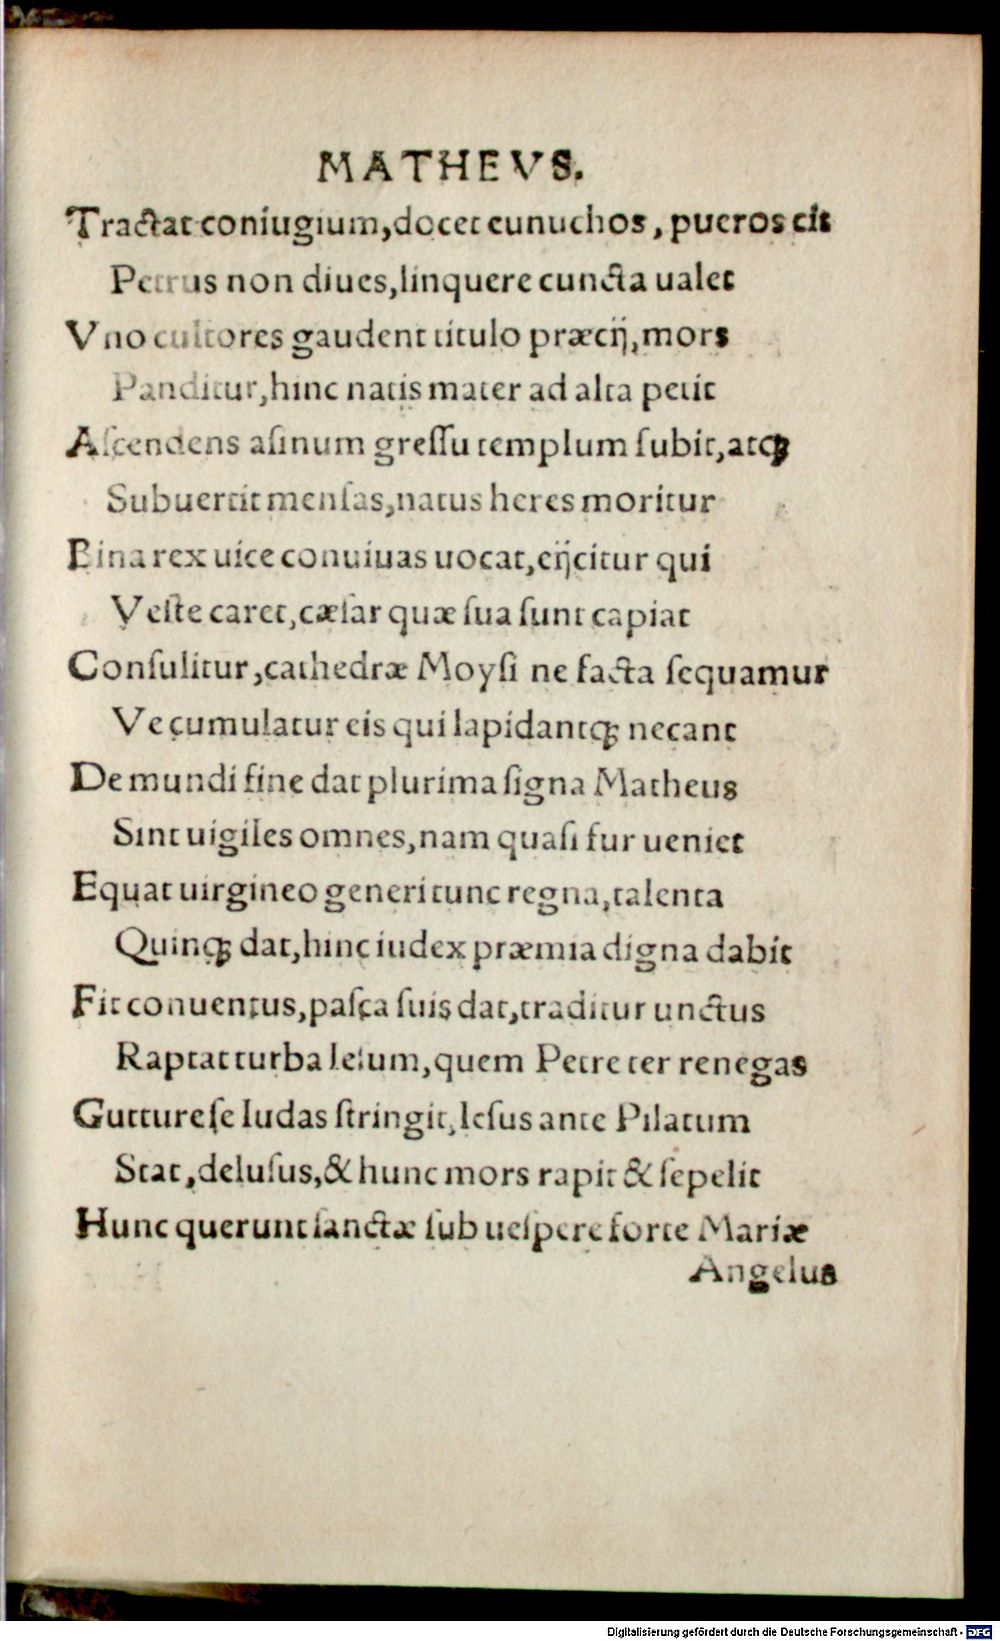 MATHEVS.
Tractat coniugium, docet eunuchos, pueros cit
Petrus non diues, linquere cuncta ualet
Vno cultores gaudent titulo præcij, mors
Panditur, hinc natis mater ad alta petit
Aſcendens aſinum greſſu templum ſubit, atqꝫ
Subuertit menſas, natus heres moritur
Bina rex uice conuiuas uocat, eijcitur qui
Veſte caret, cæſar quæ ſua ſunt capiat
Conſulitur, cathedræ Moyſi ne facta ſequamur
Ve cumulatur eis qui lapidantqꝫ necant
De mundi fine dat plurima ſigna Matheus
Sint uigiles omnes, nam quaſi fur ueniet
Equat uirgineo generi tunc regna, talenta
Quinqꝫ dat, hinc iudex præmia digna dabit
Fit conuentus, paſca ſuis dat, traditur unctus
Raptat turba Ieſum, quem Petre ter renegas
Gutture ſe Iudas ſtringit, Ieſus ante Pilatum
Stat, deluſus, & hunc mors rapit & ſepelit
Hunc querunt ſanctæ ſub ueſpere forte Mariæ
Angelus
Digitalisierung gefördert durch die Deutsche Forschungsgemeinschaft - DFG